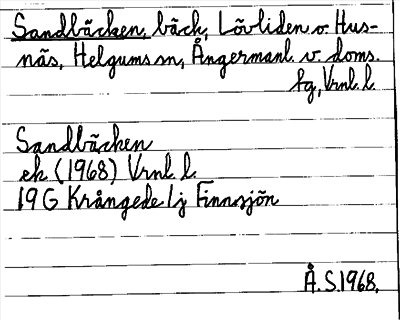 Sandbäcken, bäck, Lövliden o. Hus-
näs, Helgums sn, Ångermanl. v. doms.
fg, Vrnl. l.
Sandbäcken
ek (1968) Vrnl. l.
19 G Krångede 1j Finnsjön
Å.S. 1968.